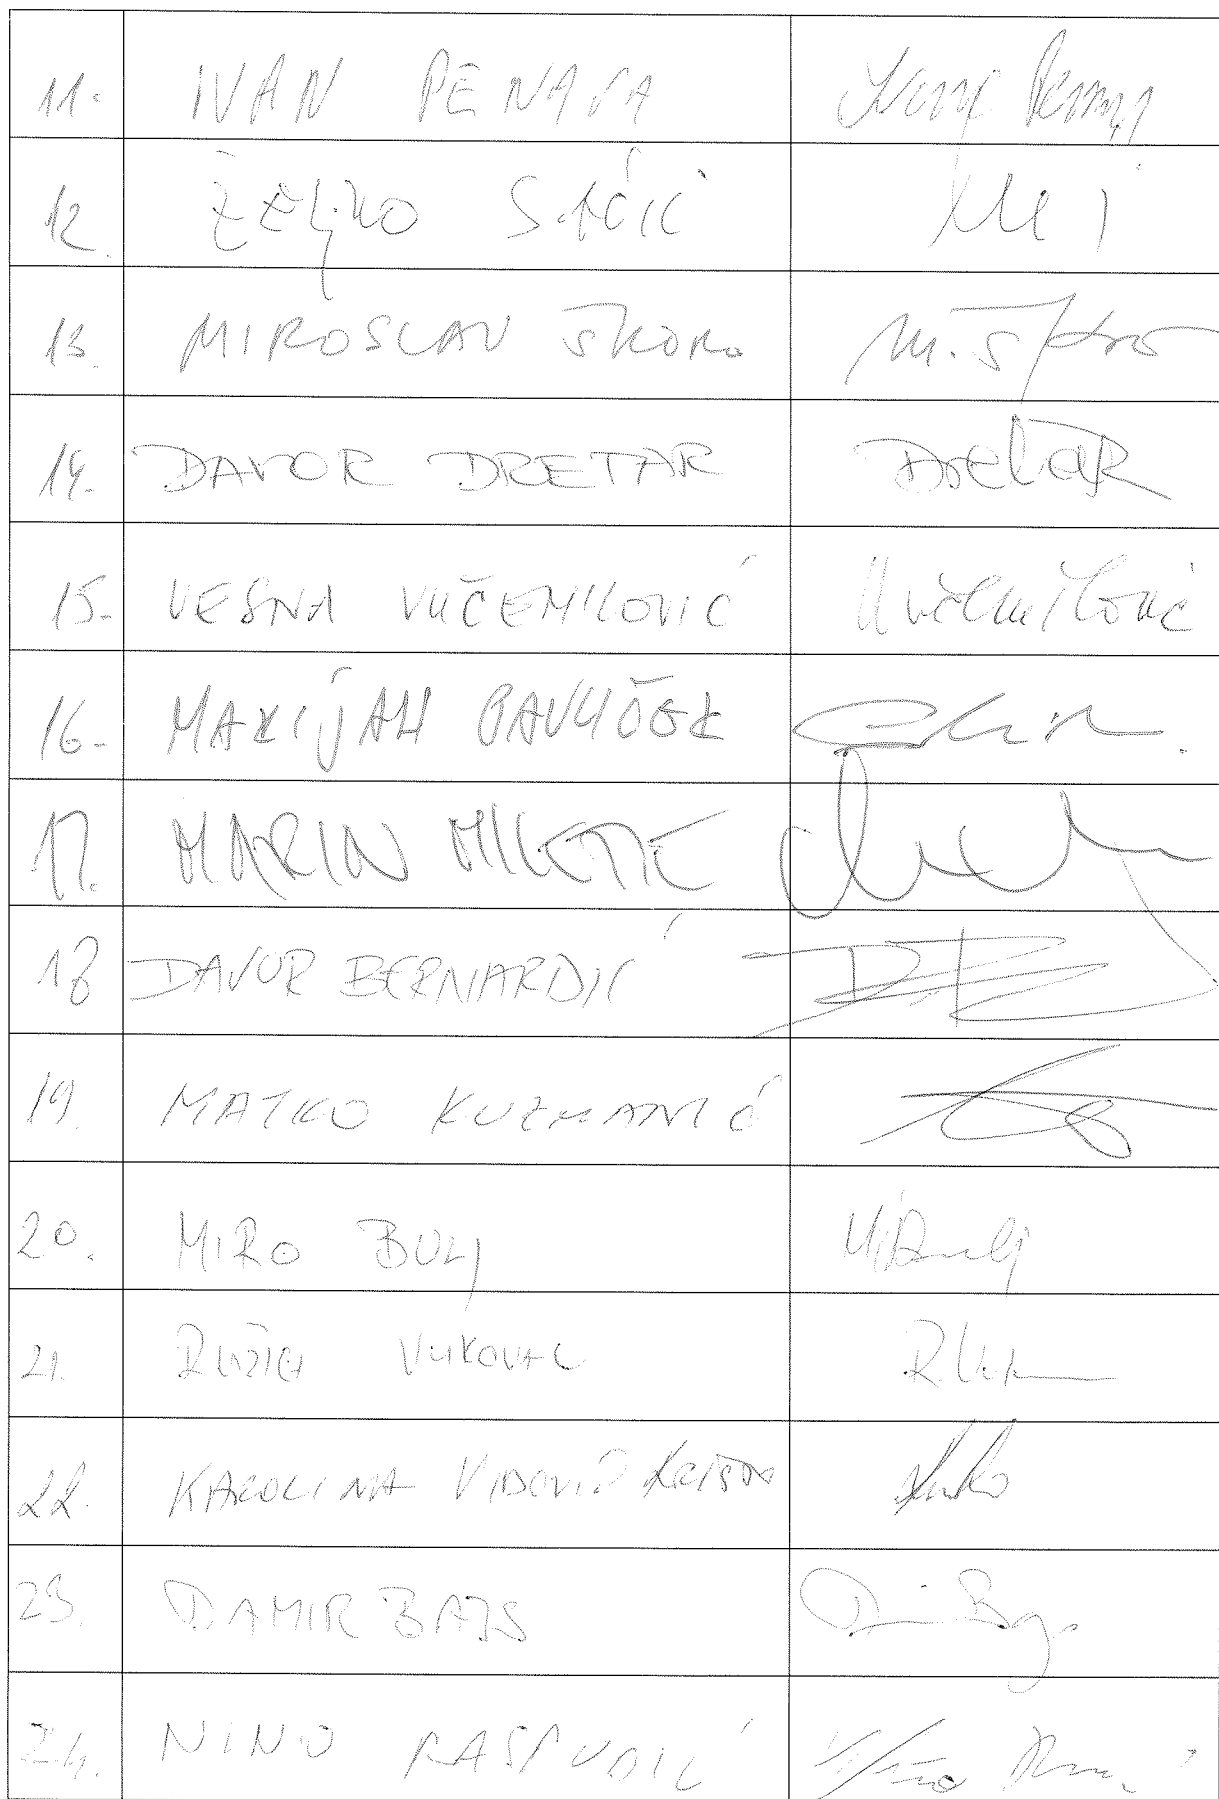 11. IVAN PENAVA Ivan Penava
12. ŽELJKO SAČIĆ
13. MIROSLAV ŠKORO M. Škoro
14. DAVOR DRETAR Dretar
15. VESNA VUČEMILOVIĆ Vučemilović
16. MARIJAN PAVLIČEK
17. MARIN MILETIĆ
18 DAVOR BERNARDIĆ
19. MATKO KUZMANIĆ
20. MIRO BULJ M Bulj
21. RUŽICA VUKOVAC
22. KAROLINA VIDOVIĆ KRIŠTO
23. DAMIR BAJS
24. NINO RASPUDIĆ Nino